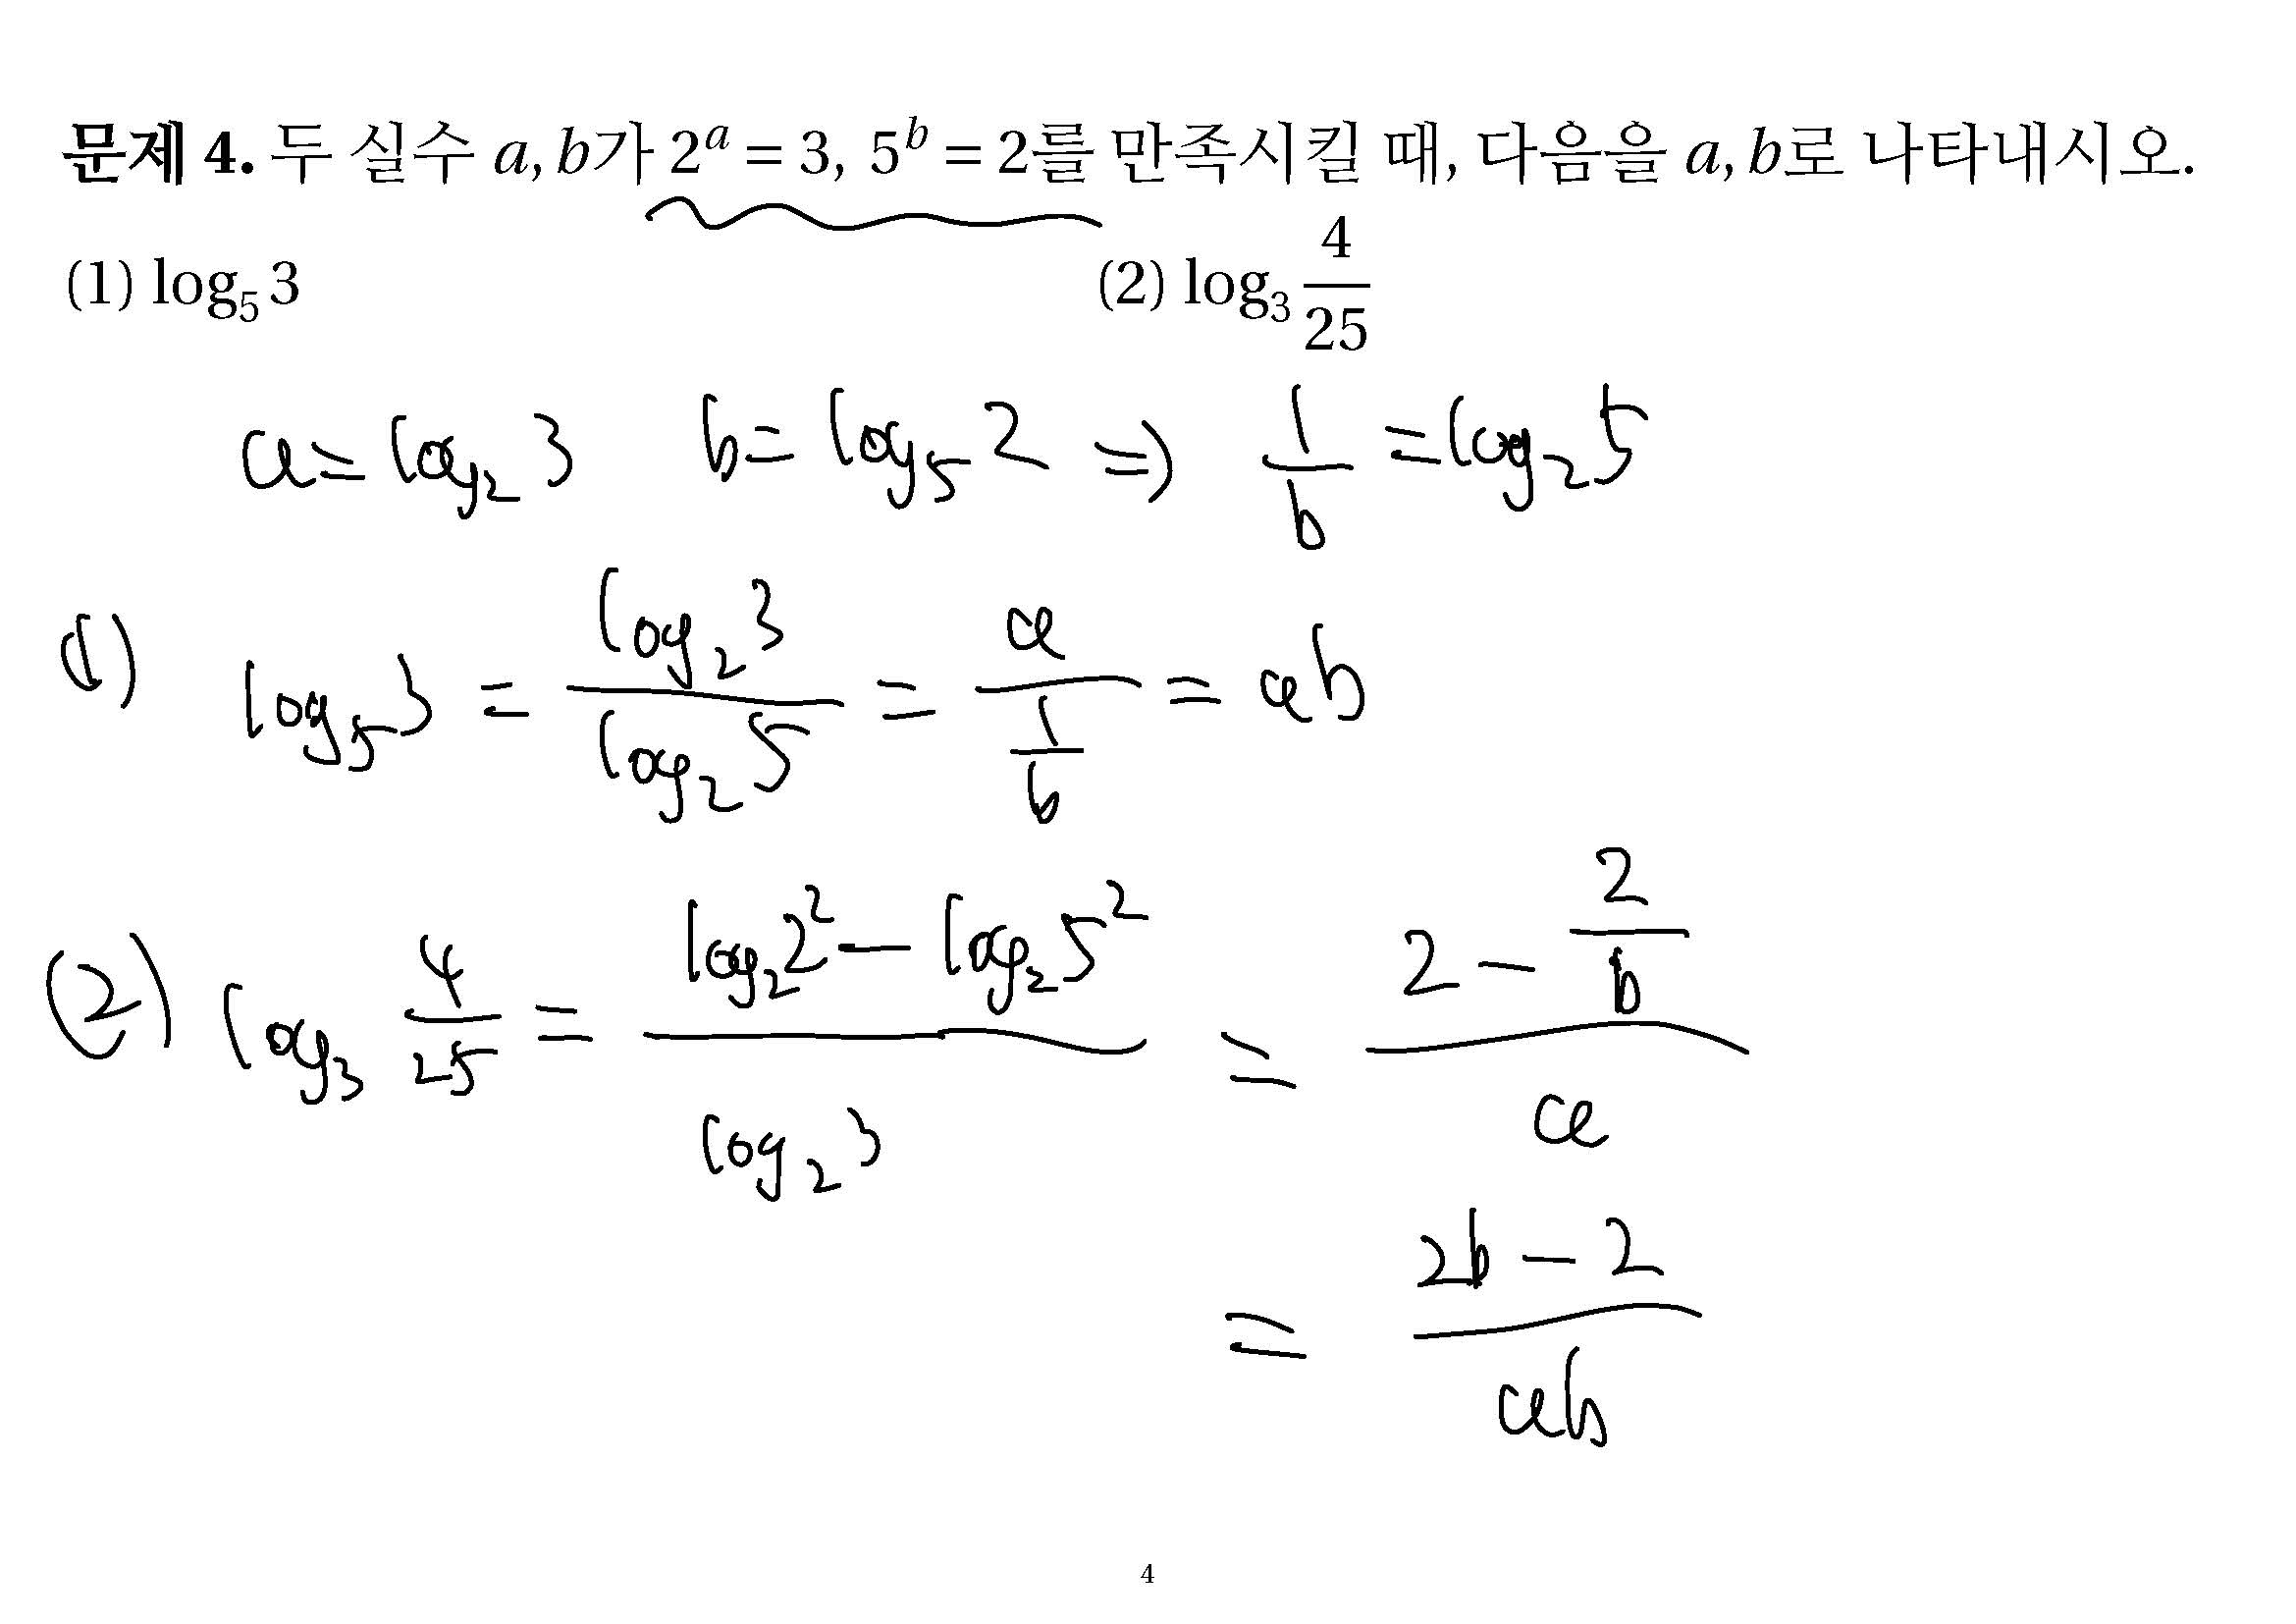 문제 4. 두 실수 a, b가 2^a = 3, 5^b = 2를 만족시킬 때, 다음을 a, b로 나타내시오.
(1) log_5 3 (2) log_3 \frac{4}{25}
a = log_2 3 b = log_5 2 ⇒ \frac{1}{b} = log_2 5
(1) log_5 3 = \frac{log_2 3}{log_2 5} = \frac{a}{\frac{1}{b}} = ab
(2) log_3 \frac{4}{25} = \frac{log_2 2^2 - log_2 5^2}{log_2 3} = \frac{2 - \frac{2}{b}}{a}
= \frac{2b - 2}{ab}
4